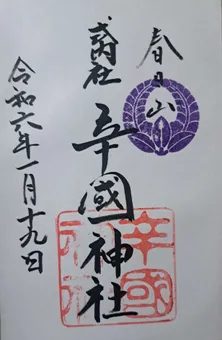 春日山
式内社
辛國神社
令和六年一月十九日
辛國神社